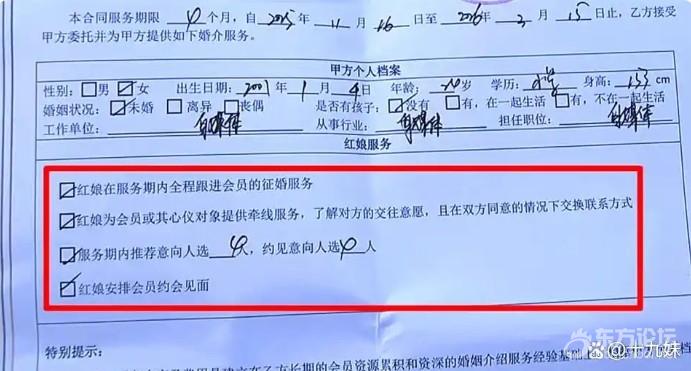 本合同服务期限 4 个月，自 2025 年 11 月 16 日至 2026 年 3 月 15 日止，乙方接受
甲方委托并为甲方提供如下婚介服务。
甲方个人档案
性别：□男 ☑女 出生日期：2001 年 1 月 4 日 年龄： 岁 学历： 身高：153 cm
婚姻状况：☑未婚 □离异 □丧偶 是否有孩子：☑没有 □有，在一起生活 □有，不在一起生活
工作单位：自媒体 从事行业：自媒体 担任职位：自媒体
红娘服务
☑红娘在服务期内全程跟进会员的征婚服务
☑红娘为会员或其心仪对象提供牵线服务，了解对方的交往意愿，且在双方同意的情况下交换联系方式
☑服务期内推荐意向人选 4人，约见意向人选 4 人
☑红娘安排会员约会见面
特别提示：
东方论坛
@十九妹